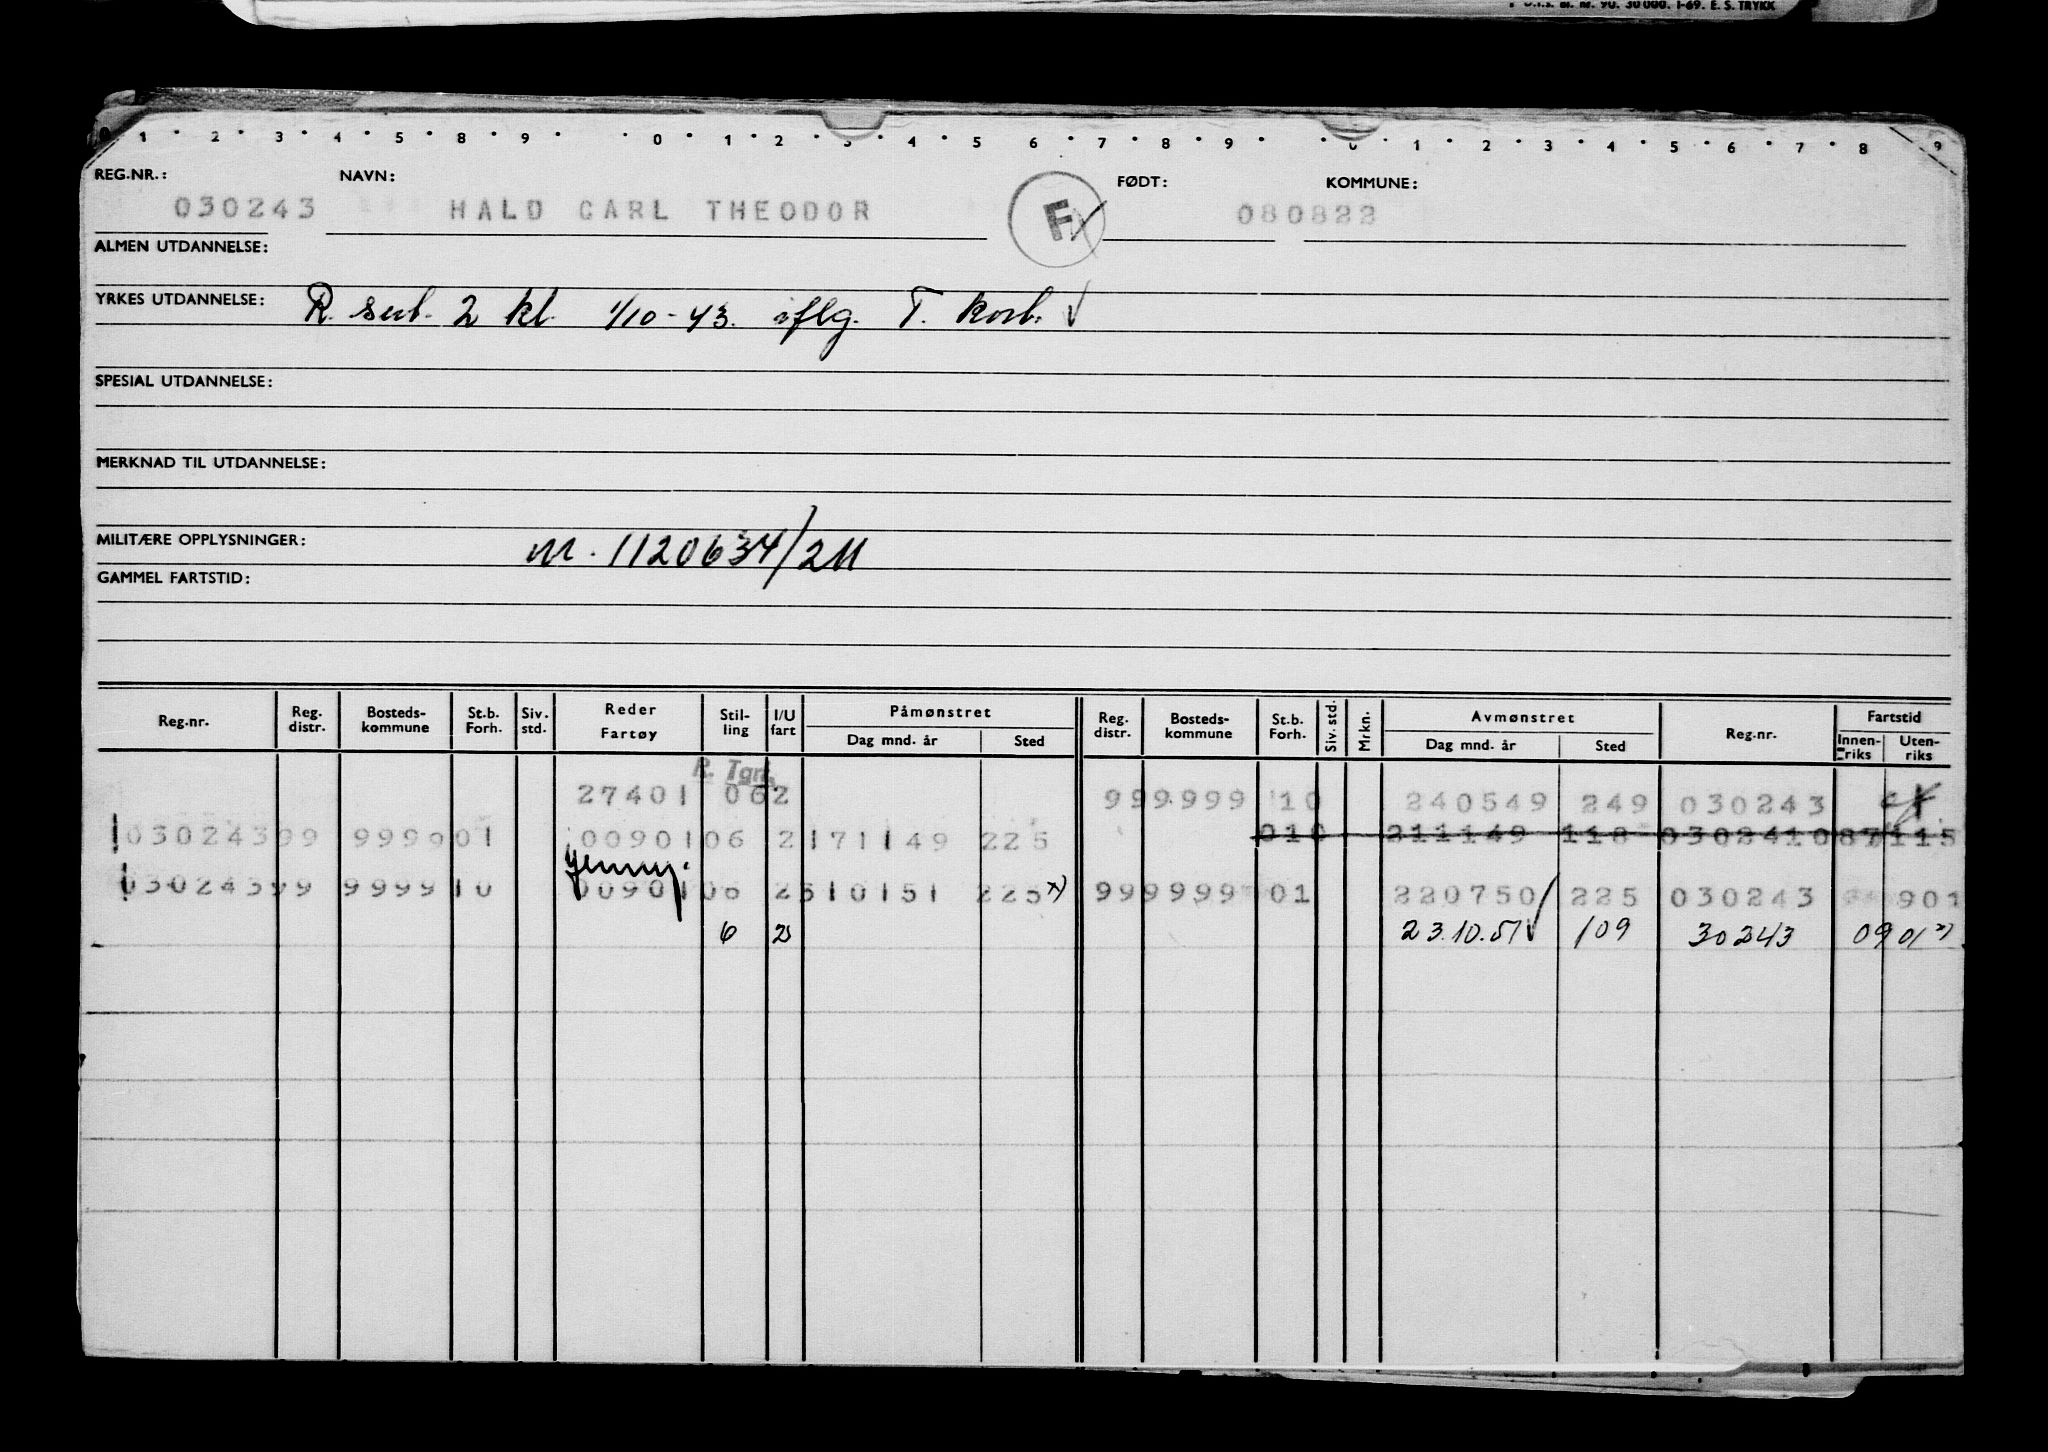 D.I.S. Bl. nr. 90. 30 000. 1-69. E. S. TRYKK
0 1 2 3 4 5 8 9 0 1 2 3 4 5 6 7 8 9 0 1 2 3 4 5 6 7 8 9
REG.NR.: NAVN: FØDT: KOMMUNE:
030243 HALD CARL THEODOR F 080822
ALMEN UTDANNELSE:
YRKES UTDANNELSE: R. sert. 2 kl. 1/10-43. iflg. T. kort.
SPESIAL UTDANNELSE:
MERKNAD TIL UTDANNELSE:
MILITÆRE OPPLYSNINGER: M. 1120634/211
GAMMEL FARTSTID:
Reg.nr. Reg. distr. Bosteds- kommune St.b. Forh. Siv. std. Reder Fartøy Stil- ling I/U fart Påmønstret Dag mnd. år Sted Reg. distr. Bosteds- kommune St.b. Forh. Siv. std. Mrkn. Avmønstret Dag mnd. år Sted Reg.nr. Fartstid Innen- riks Uten- riks
R. Tgrf.
27401 062 999999 10 240549 249 030243
03024399 999901 0090106 2171149 225 010 211149 118 0302410 87115
Jenny.
03024399 999910 0090106 2310151 225 x) 999999 01 220750 225 030243 901
6 2 23.10.51 109 30243 0901 x)